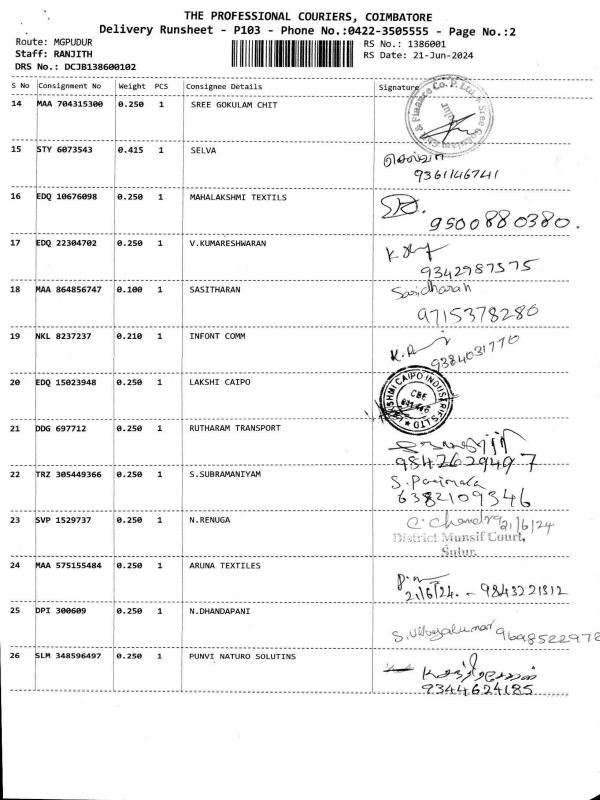 THE PROFESSIONAL COURIERS, COIMBATORE
Delivery Runsheet - P103 - Phone No.:0422-3505555 - Page No.:2
Route: MGPUDUR
RS No.: 1386001
Staff: RANJITH
RS Date: 21-Jun-2024
DRS No.: DCJB138600102
S No Consignment No Weight PCS Consignee Details Signature
14 MAA 704315300 0.250 1 SREE GOKULAM CHIT
15 STY 6073543 0.415 1 SELVA
செல்வா
9361146741
16 EDQ 10676098 0.250 1 MAHALAKSHMI TEXTILS
9500880380.
17 EDQ 22304702 0.250 1 V.KUMARESHWARAN
9342987575
18 MAA 864856747 0.100 1 SASITHARAN
Sasidharan
9715378280
19 NKL 8237237 0.210 1 INFONT COMM
9384031770
20 EDQ 15023948 0.250 1 LAKSHI CAIPO
LAKSHMI CAIPO INDUSTRIES LTD
CBE
21 DDG 697712 0.250 1 RUTHARAM TRANSPORT
9847629497
22 TRZ 305449366 0.250 1 S.SUBRAMANIYAM
S. Parimala
6382109346
23 SVP 1529737 0.250 1 N.RENUGA
C. Chandra 21/6/24
District Munsif Court,
Sulur.
24 MAA 575155484 0.250 1 ARUNA TEXTILES
21/6/24. - 9843221312
25 DPI 300609 0.250 1 N.DHANDAPANI
9698522972
26 SLM 348596497 0.250 1 PUNVI NATURO SOLUTINS
9344624185